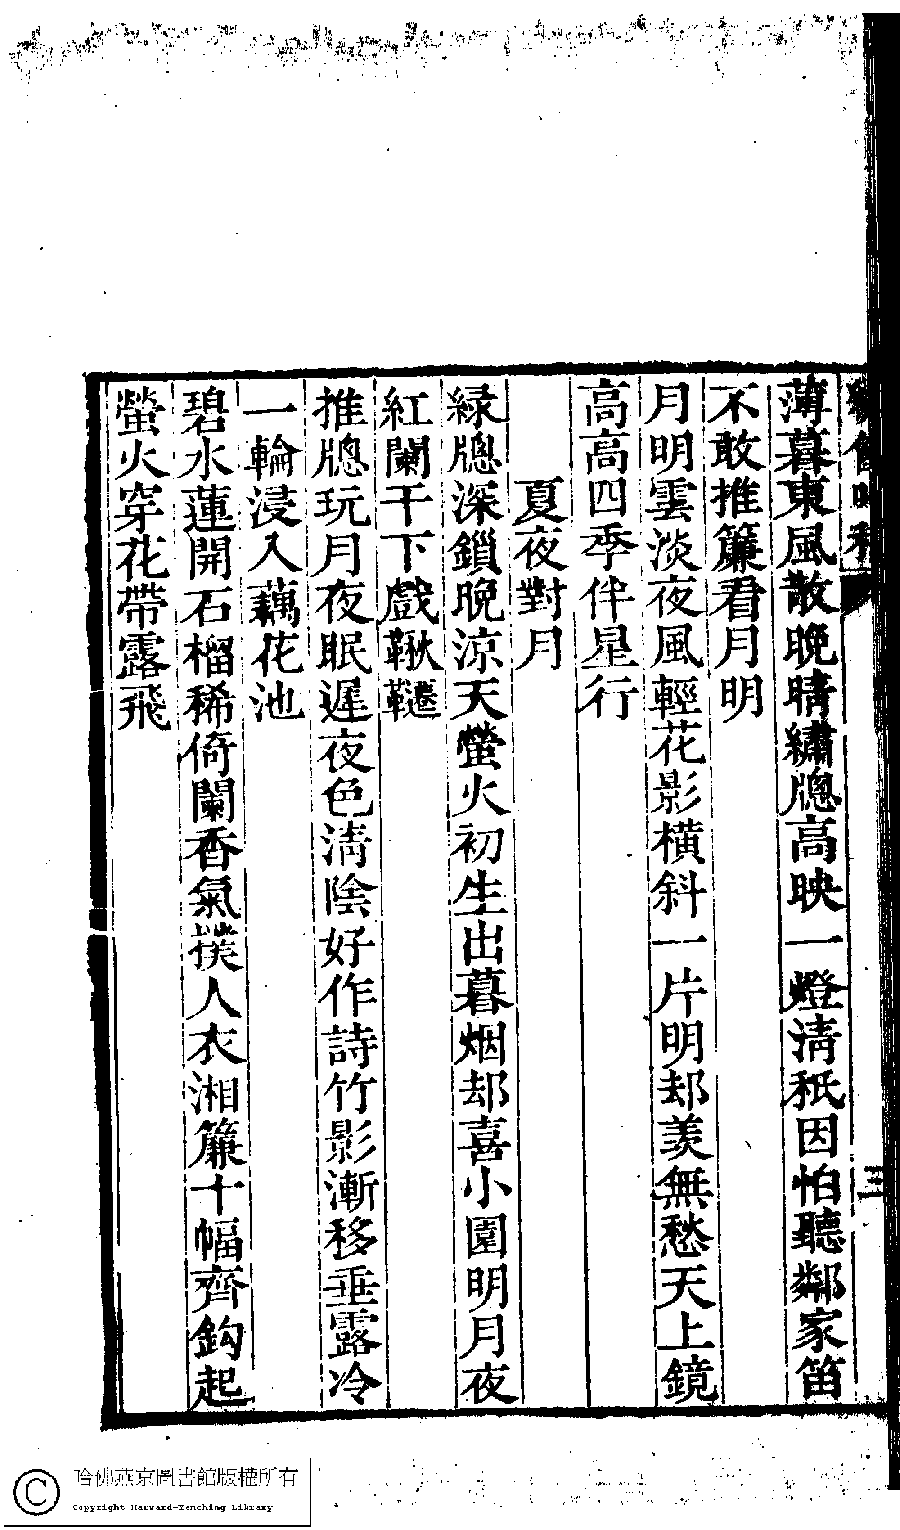 薄暮東風散晚晴繡牕高映一燈淸秖因怕聽鄰家笛
不敢推簾看月明
月明雲淡夜風輕花影橫斜一片明却羨無愁天上鏡
高高四季伴星行
夏夜對月
綠牕深鎖晚涼天螢火初生出暮烟却喜小園明月夜
紅闌干下戲鞦韆
推牕玩月夜眠遲夜色淸陰好作詩竹影漸移垂露冷
一輪浸入藕花池
碧水蓮開石榴稀倚闌香氣撲人衣湘簾十幅齊鈎起
螢火穿花帶露飛
三
哈佛燕京圖書館版權所有
Copyright Harvard-Yenching Library